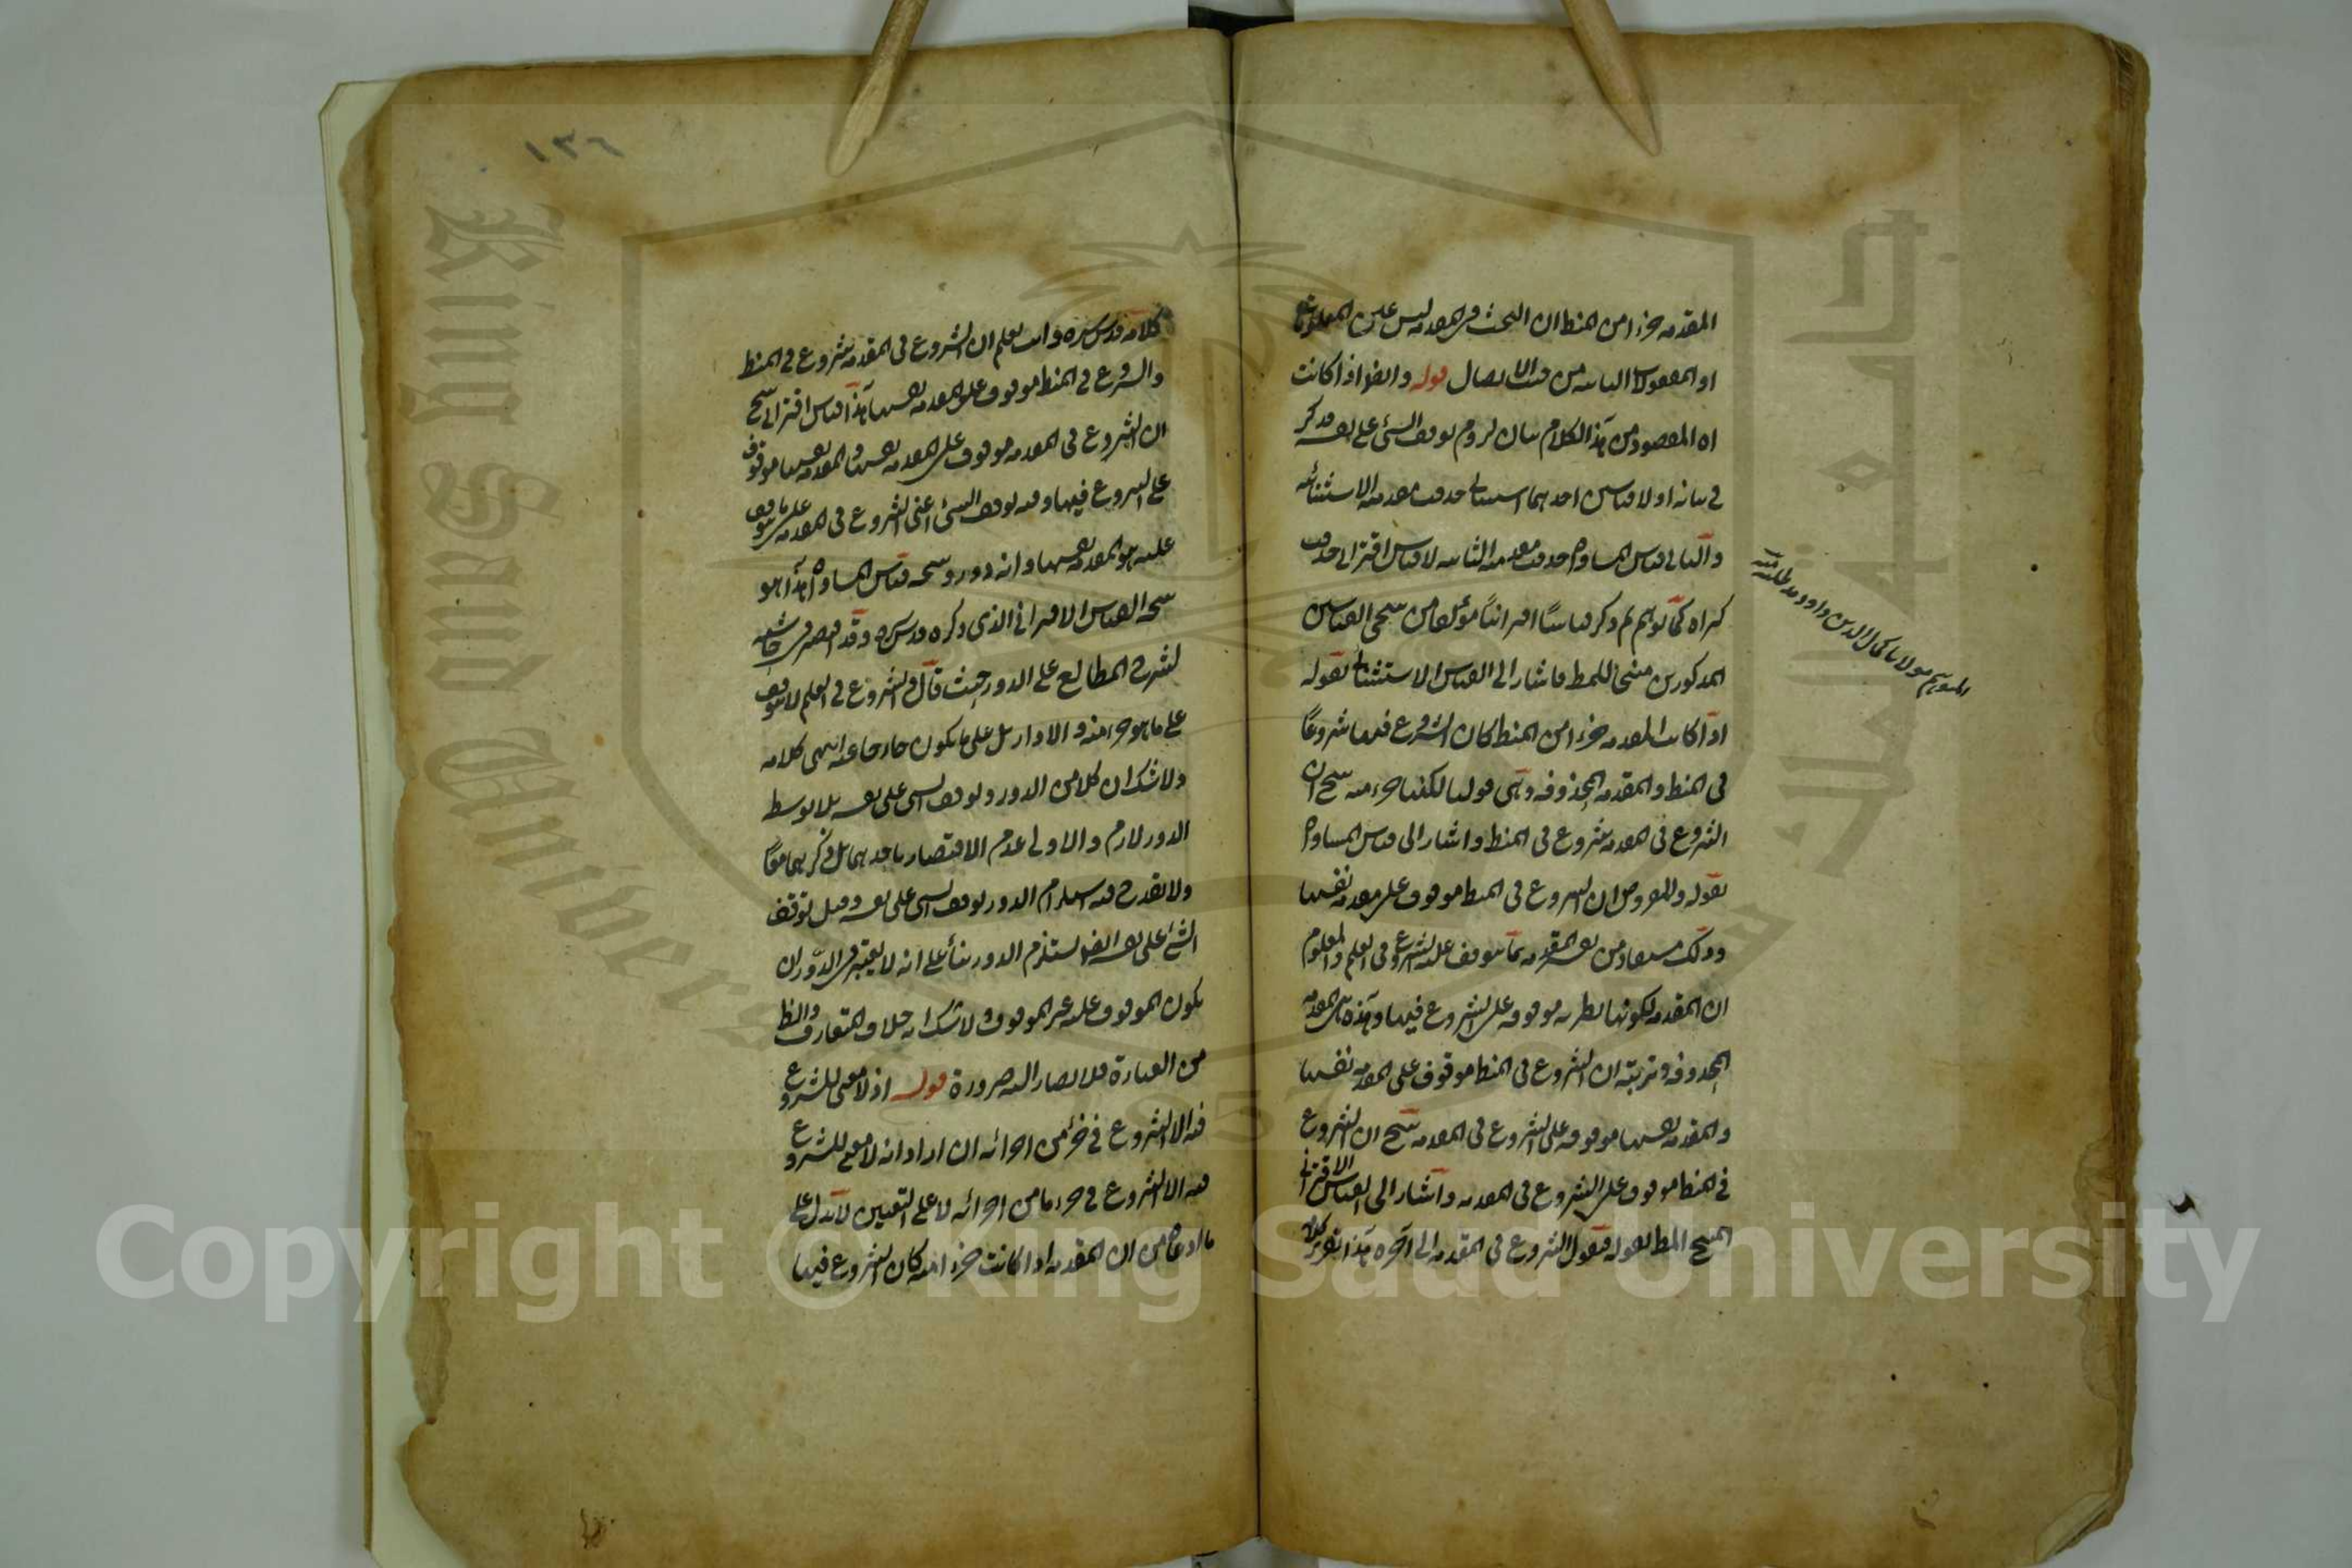 المقدمه جزءا من المنطق ان البحث في المقدمه ليس عن المعلومات
او المعقولات الثانيه من حيث الايصال قوله وايضا اذا كانت
اه المقصود من هذا الكلام بيان لزوم توقف الشئ على نفسه فذكر
في بيانه اولا قياسين احدهما استثنائي حذفت مقدمته الاستثنائيه
والثاني قياس المساواة حذفت مقدمته الثانيه لا قياس اقتراني حذفت
كبراه كما توهم ثم ذكر قياسا اقترانيا مؤلفا من نتيجتي القياسين
المذكورين منتجا للمط فاشار الى القياس الاستثنائي بقوله
اذا كانت المقدمه جزءا من المنط كان الشروع فيها شروعا
في المنط والمقدمه المحذوفه وهي قولنا لكنها جزء منه ينتج ان
الشروع في المقدمه شروع في المنط واشار الى قياس المساواة
بقوله والمفروض ان الشروع في المنط موقوف على مقدمه نفسها
وذلك مستفاد من تعريف المقدمه بما يتوقف عليه الشروع في العلم والمعلوم
ان المقدمه لكونها نظريه موقوفه على الشروع فيها وهذه هي المقدمه
المحذوفه وترتيبه ان الشروع في المنط موقوف على المقدمه نفسها
والمقدمه نفسها موقوفه على الشروع في المقدمه ينتج ان الشروع
في المنط موقوف على الشروع في المقدمه واشار الى القياس الاقتراني
المنتج المط بقوله فنقول الشروع في المقدمه الى آخره هذا تقرير كلامه
المتوهم مولانا كمال الدين داود
١٣٦
كلامه قدس سره وانت تعلم ان الشروع في المقدمه شروع في المنط
والشروع في المنط موقوف على المقدمه نفسها هذا قياس اقتراني ينتج
ان الشروع في المقدمه موقوف على المقدمه نفسها والمقدمه نفسها موقوف
على الشروع فيها وفيه توقف الشئ اعني الشروع في المقدمه على ما يتوقف
عليه هو المقدمه نفسها وانه دور ونتيجه قياس المساواة هذا هو
نتيجه القياس الاقتراني الذي ذكره قدس سره وقد اقتصر في حاشيته
لشرح المطالع على الدور حيث قال والشروع في العلم لا يتوقف
على ما هو جزء منه والا دار بل على ما يكون خارجا عنه انتهى كلامه
ولا شك ان كلا من الدور وتوقف الشئ على نفسه بلا توسط
الدور لازم والاولى عدم الاقتصار باحدهما بل ذكرهما معا
ولا يقدح فيه استلزام الدور توقف الشئ على نفسه وقيل توقف
الشئ على نفسه ايضا يستلزم الدور بناء على انه لا يعتبر في الدور ان
يكون الموقوف عليه غير الموقوف ولا شك انه خلاف المتعارف والظ
من العبارة فلا يصار اليه ضرورة قوله اذ لا معنى للشروع
فيه الا الشروع في جزء من اجزائه ان اراد انه لا معنى للشروع
فيه الا الشروع في جزء ما من اجزائه لا على التعيين لا يدل على
ما ادعاه من ان المقدمه اذا كانت جزءا منه كان الشروع فيها
King Saud University
جامعة الملك
1957
Copyright © King Saud University